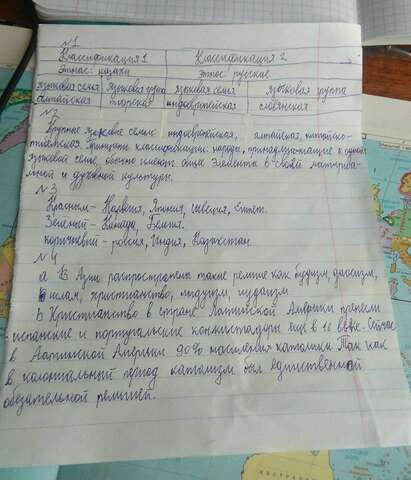 №1
Классификация 1 Классификация 2
Этнос: казахи Этнос: русские
языковая семья языковая группа языковая семья языковая группа
алтайская тюркская индоевропейская славянская
№2
Крупные языковые семьи: индоевропейская, алтайская, китайско-
тибетская. Принципы классификации: народы, принадлежащие к одной
языковой семье, обычно имеют общие элементы в своей материа-
льной и духовной культуры.
№3
Красный - Норвегия, Япония, Швеция, Египет.
Зелёный - Канада,
коричневый - россия, Индия, Казахстан.
№4
а В Азии распространены такие религие как буддизм, даосизм,
ислам, христианство, индуизм, иудаизм
b Христианство в стране Латинской Америки принесли
испанские и португальские конкистадоры ещё в 16 веке. Сейчас
в Латинской Америки 90% населения католики. Так как
в колониальный период католизм был единственной
обязательной религией.